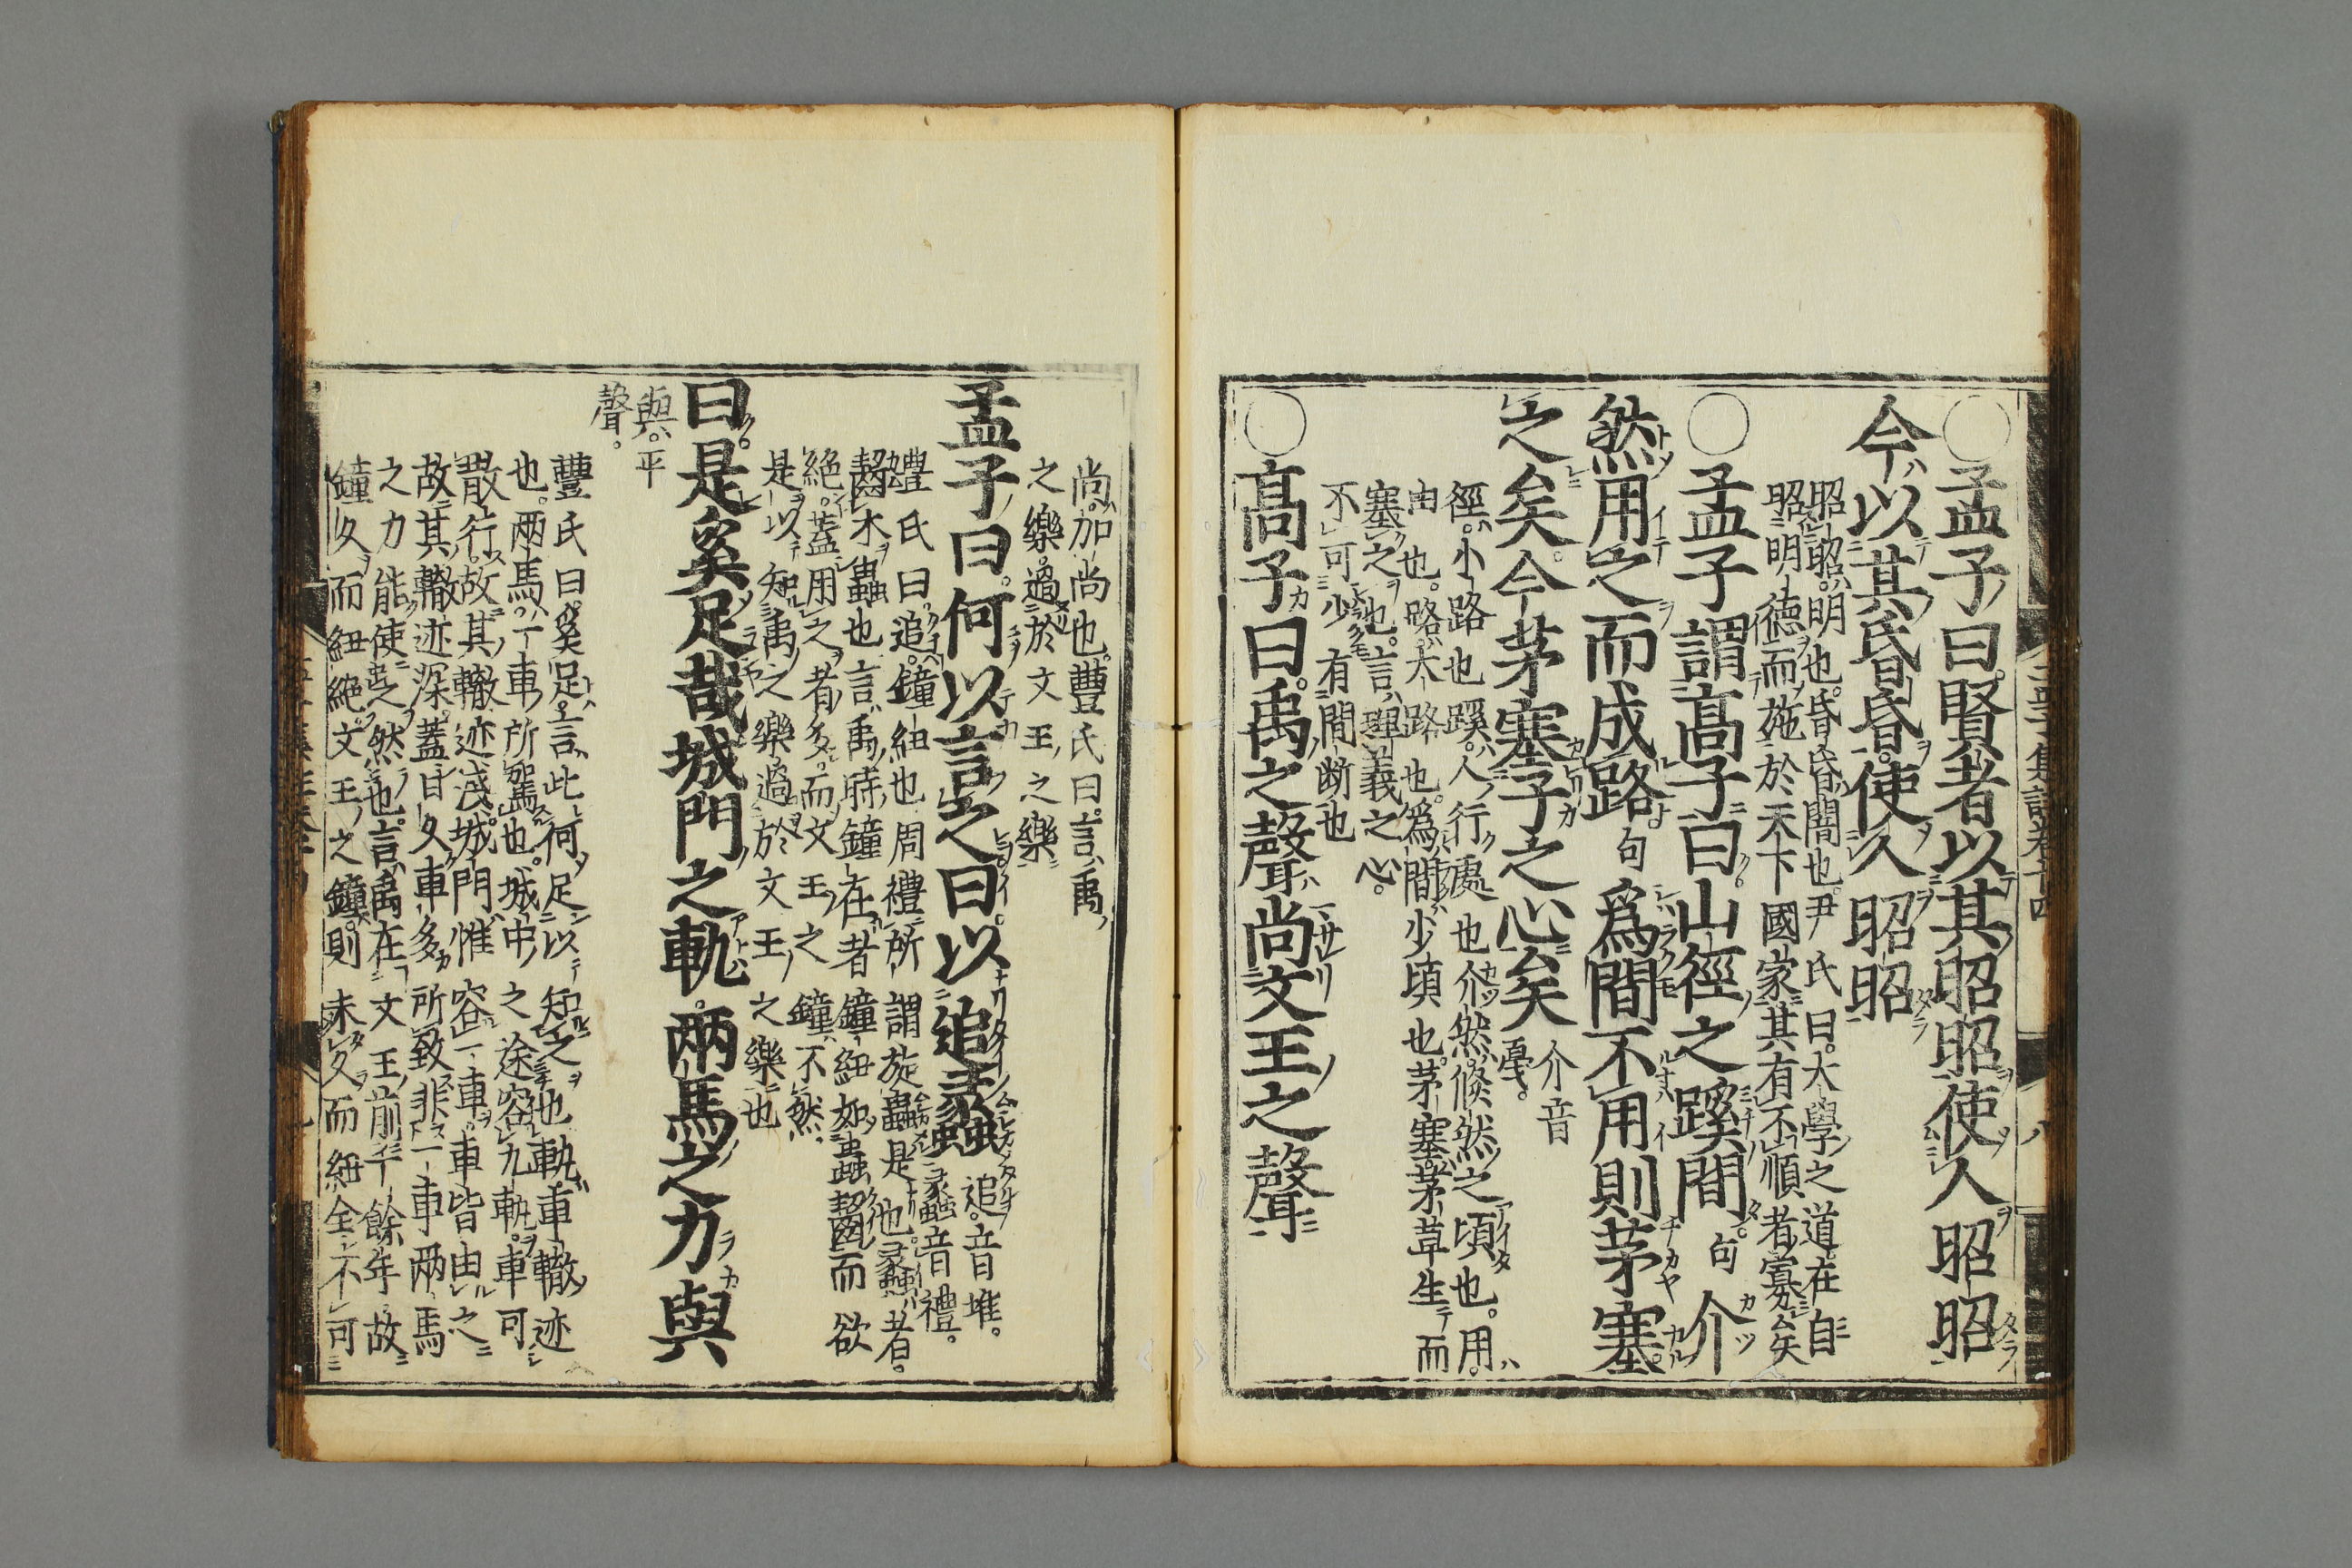 ○孟子曰賢者以其昭昭使人昭昭
今以其昏昏使人昭昭
昭昭明也昏昏闇也尹氏曰大學之道在自
昭明德而施於天下國家其有不順者寡矣
○孟子謂高子曰山徑之蹊間句介
然用之而成路句爲間不用則茅塞
之矣今茅塞子之心矣介音戛
徑小路也蹊人行處也介然倏然之頃也用
由也路大路也爲間少頃也茅塞茅草生而
塞之也言理義之心
不可少有間断也
○高子曰禹之聲尚文王之聲
尚加尚也豐氏曰言禹
之樂過於文王之樂
孟子曰何以言之曰以追蠡追音堆蠡音禮
豐氏曰追鐘紐也周禮所謂旋蟲是也蠡者
齧木蟲也言禹時鐘在者鐘紐如蟲齧而欲
絕蓋用之者多而文王之鐘不然
是以知禹之樂過於文王之樂也
曰是奚足哉城門之軌兩馬之力與
與平聲
豐氏曰奚足言此何足以知之也軌車轍迹
也兩馬一車所駕也城中之途容九軌車可
散行故其轍迹淺城門惟容一車車皆由之
故其轍迹深蓋日久車多所致非一車兩馬
之力能使之然也言禹在文王前千餘年故
鐘久而紐絕文王之鐘則未久而紐全不可